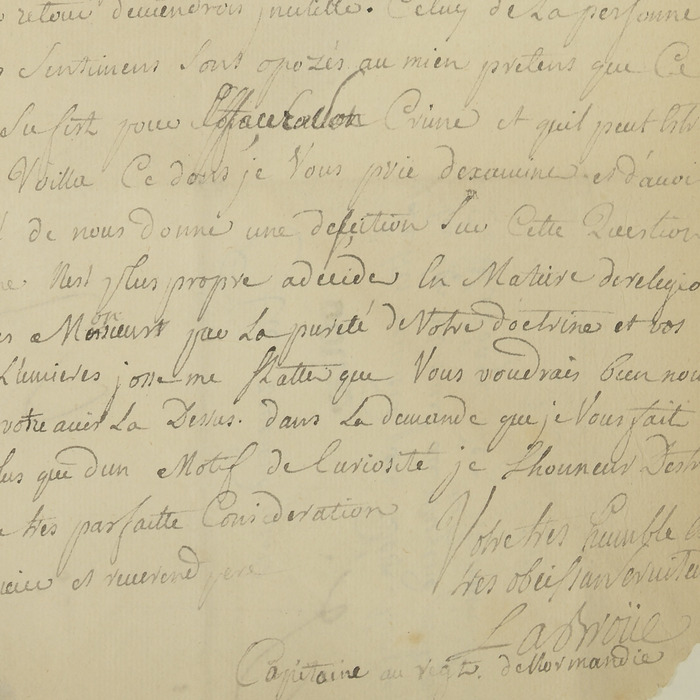 retour deviendrois jnutille. Celuy de La personne
Sentimens Sont opozés au mien pretens que Ce
Sufist pour Crime et quil peut
Voilla Ce dont je Vous prie dexamine et d'avoi
de nous donné une desition Sur Cette Question
Nest plus propre adecide En Matiere dereligio
Monsieurs par La pureté de Votre doctrine et vos
Lumieres josse me flatter que Vous voudrais bien nou
votre avis La Desus. dans La demande que je Vous fait
lus que dun Motif de Curiosité je Lhonneur Destr
tres parfaitte Consideration
Votre tres humble e
et reverend pere
tres obeissan servite
LaBroüe
Capitaine au regt. deNormandie